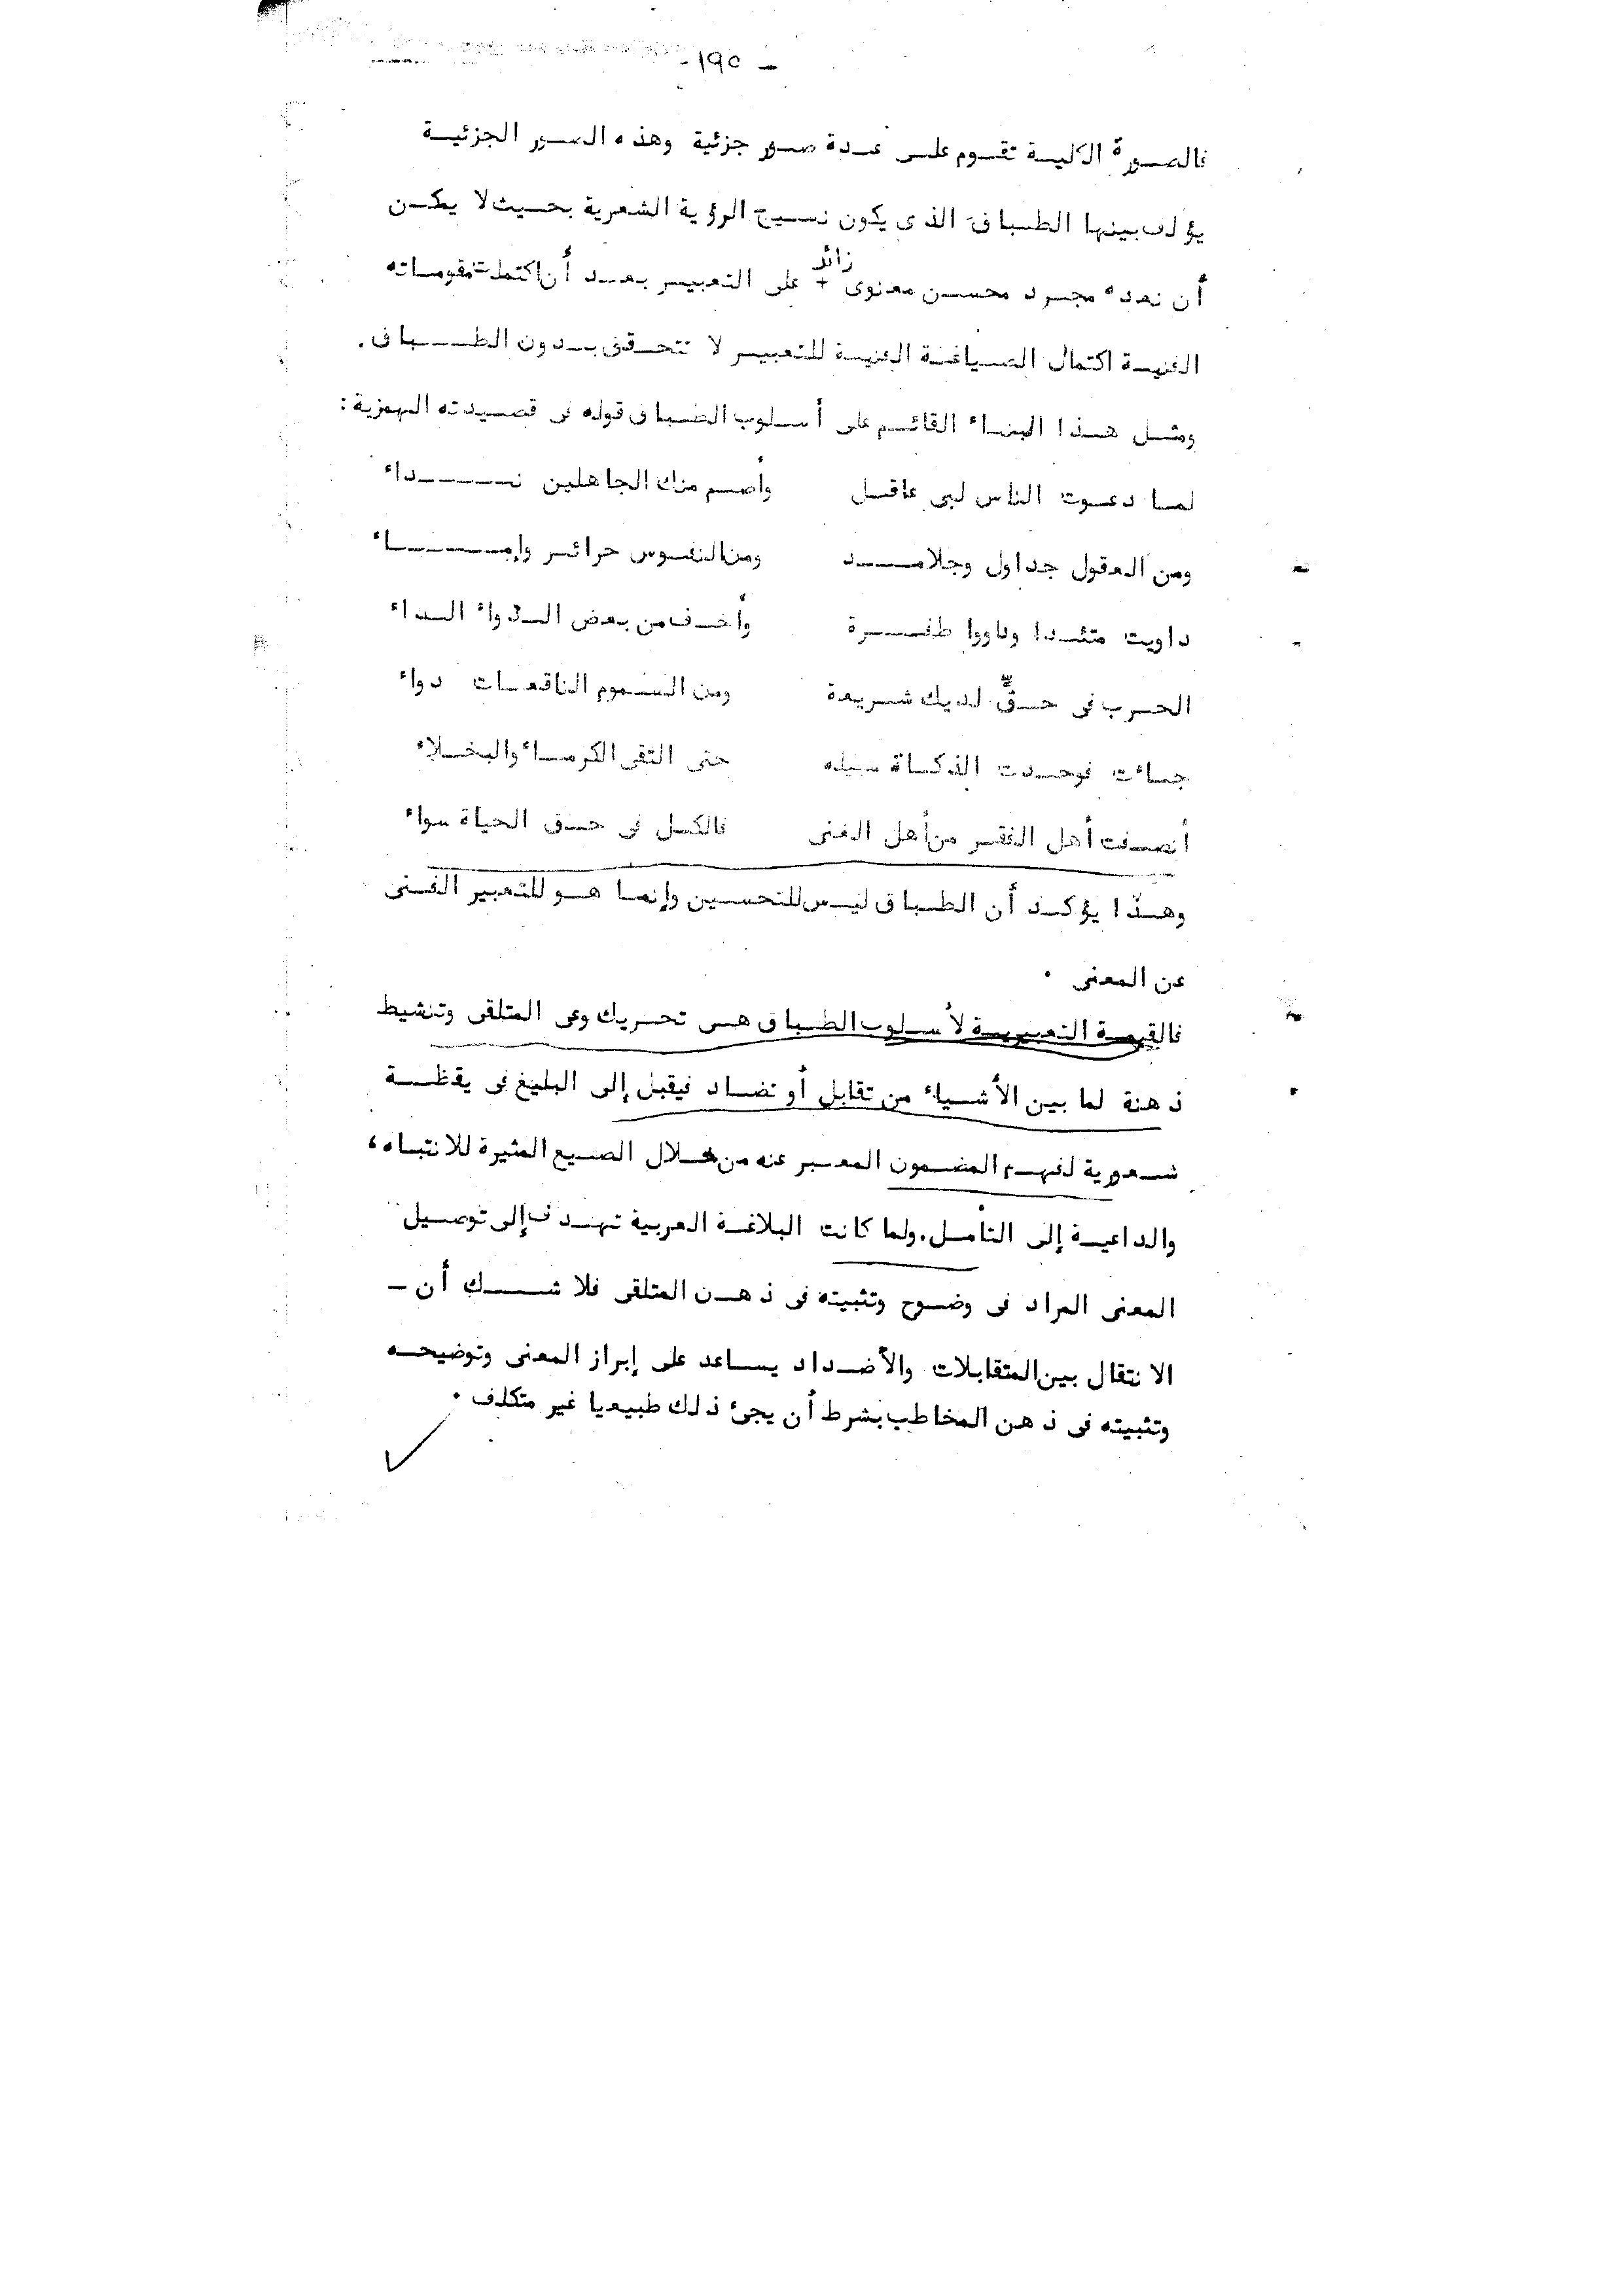 - ١٩٥ -
فالصورة الكلية تقوم على عدة صور جزئية وهذه الصور الجزئية
يؤلف بينها الطباق الذى يكون نسيج الرؤية الشعرية بحيث لا يمكن
زائد
أن نعده مجرد محسن معنوى + على التعبير بعد أن اكتملت مقوماته
الفنية اكتمال الصياغة الفنية للتعبير لا تتحقق بدون الطباق .
ومثل هذا البناء القائم على أسلوب الطباق قوله فى قصيدته الهمزية :
لما دعوت الناس لبى عاقل وأصم منك الجاهلين نداء
ومن العقول جداول وجلامد ومن النفوس حرائر وإماء
داويت متئدا وداووا طفرة وأخف من بعض الدواء الداء
الحرب فى حقٍّ لديك شريعة ومن السموم الناقعات دواء
جاءت فوحدت الزكاة سبيله حتى التقى الكرماء والبخلاء
أنصفت أهل الفقر من أهل الغنى فالكل فى حق الحياة سواء
وهذا يؤكد أن الطباق ليس للتحسين وإنما هو للتعبير الفنى
عن المعنى .
فالقيمة التعبيرية لأسلوب الطباق هى تحريك وعى المتلقى وتنشيط
ذهنة لما بين الأشياء من تقابل أو تضاد فيقبل إلى البليغ فى يقظة
شعورية لفهم المضمون المعبر عنه من خلال الصيع المثيرة للانتباه ،
والداعية إلى التأمل . ولما كانت البلاغة العربية تهدف إلى توصيل
المعنى المراد فى وضوح وتثبيته فى ذهن المتلقى فلا شك أن -
الانتقال بين المتقابلات والأضداد يساعد على إبراز المعنى وتوضيحه
وتثبيته فى ذهن المخاطب بشرط أن يجئ ذلك طبيعيا غير متكلف .